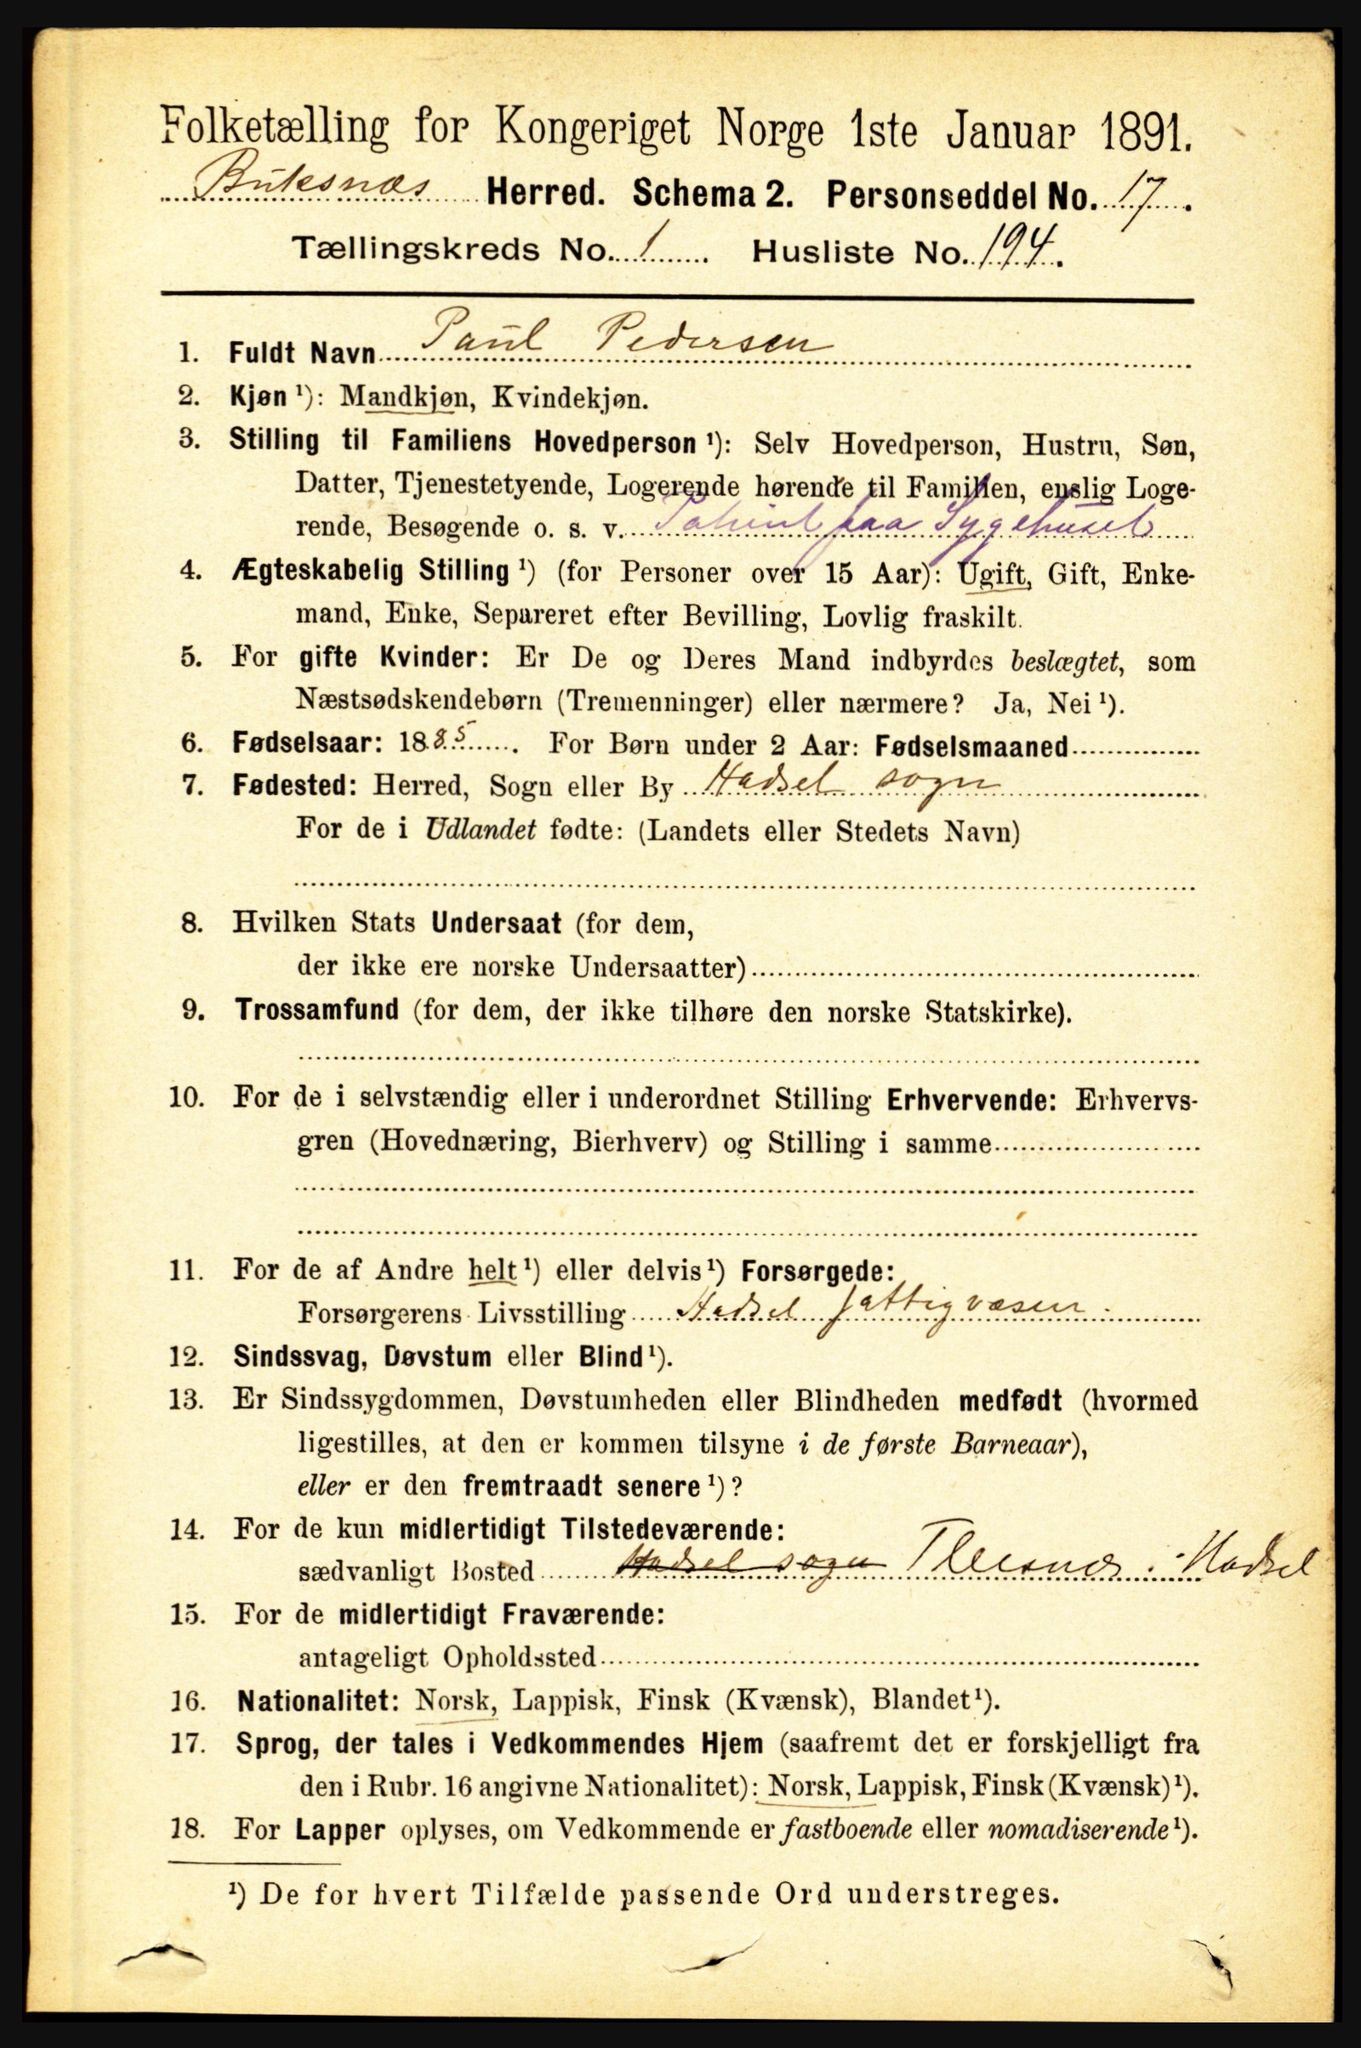 Folketælling for Kongeriget Norge 1ste Januar 1891.
Buksnæs Herred. Schema 2. Personseddel No. 17.
Tællingskreds No. 1. Husliste No. 194.
1. Fuldt Navn Paul Pedersen
2. Kjøn ¹): Mandkjøn, Kvindekjøn.
3. Stilling til Familiens Hovedperson ¹): Selv Hovedperson, Hustru, Søn,
Datter, Tjenestetyende, Logerende hørende til Familien, enslig Loge-
rende, Besøgende o. s. v. Patient paa Sygehuset
4. Ægteskabelig Stilling ¹) (for Personer over 15 Aar): Ugift, Gift, Enke-
mand, Enke, Separeret efter Bevilling, Lovlig fraskilt.
5. For gifte Kvinder: Er De og Deres Mand indbyrdes beslægtet, som
Næstsødskendebørn (Tremenninger) eller nærmere? Ja, Nei ¹).
6. Fødselsaar: 1885. For Børn under 2 Aar: Fødselsmaaned
7. Fødested: Herred, Sogn eller By Hadsel sogn
For de i Udlandet fødte: (Landets eller Stedets Navn)
8. Hvilken Stats Undersaat (for dem,
der ikke ere norske Undersaatter)
9. Trossamfund (for dem, der ikke tilhøre den norske Statskirke).
10. For de i selvstændig eller i underordnet Stilling Erhvervende: Erhvervs-
gren (Hovednæring, Bierhverv) og Stilling i samme
11. For de af Andre helt ¹) eller delvis ¹) Forsørgede:
Forsørgerens Livsstilling Hadsel fattigvæsen.
12. Sindssvag, Døvstum eller Blind ¹).
13. Er Sindssygdommen, Døvstumheden eller Blindheden medfødt (hvormed
ligestilles, at den er kommen tilsyne i de første Barneaar),
eller er den fremtraadt senere ¹)?
14. For de kun midlertidigt Tilstedeværende:
sædvanligt Bosted Hadsel sogn Hadsel
15. For de midlertidigt Fraværende:
antageligt Opholdssted
16. Nationalitet: Norsk, Lappisk, Finsk (Kvænsk), Blandet ¹).
17. Sprog, der tales i Vedkommendes Hjem (saafremt det er forskjelligt fra
den i Rubr. 16 angivne Nationalitet): Norsk, Lappisk, Finsk (Kvænsk) ¹).
18. For Lapper oplyses, om Vedkommende er fastboende eller nomadiserende ¹).
¹) De for hvert Tilfælde passende Ord understreges.